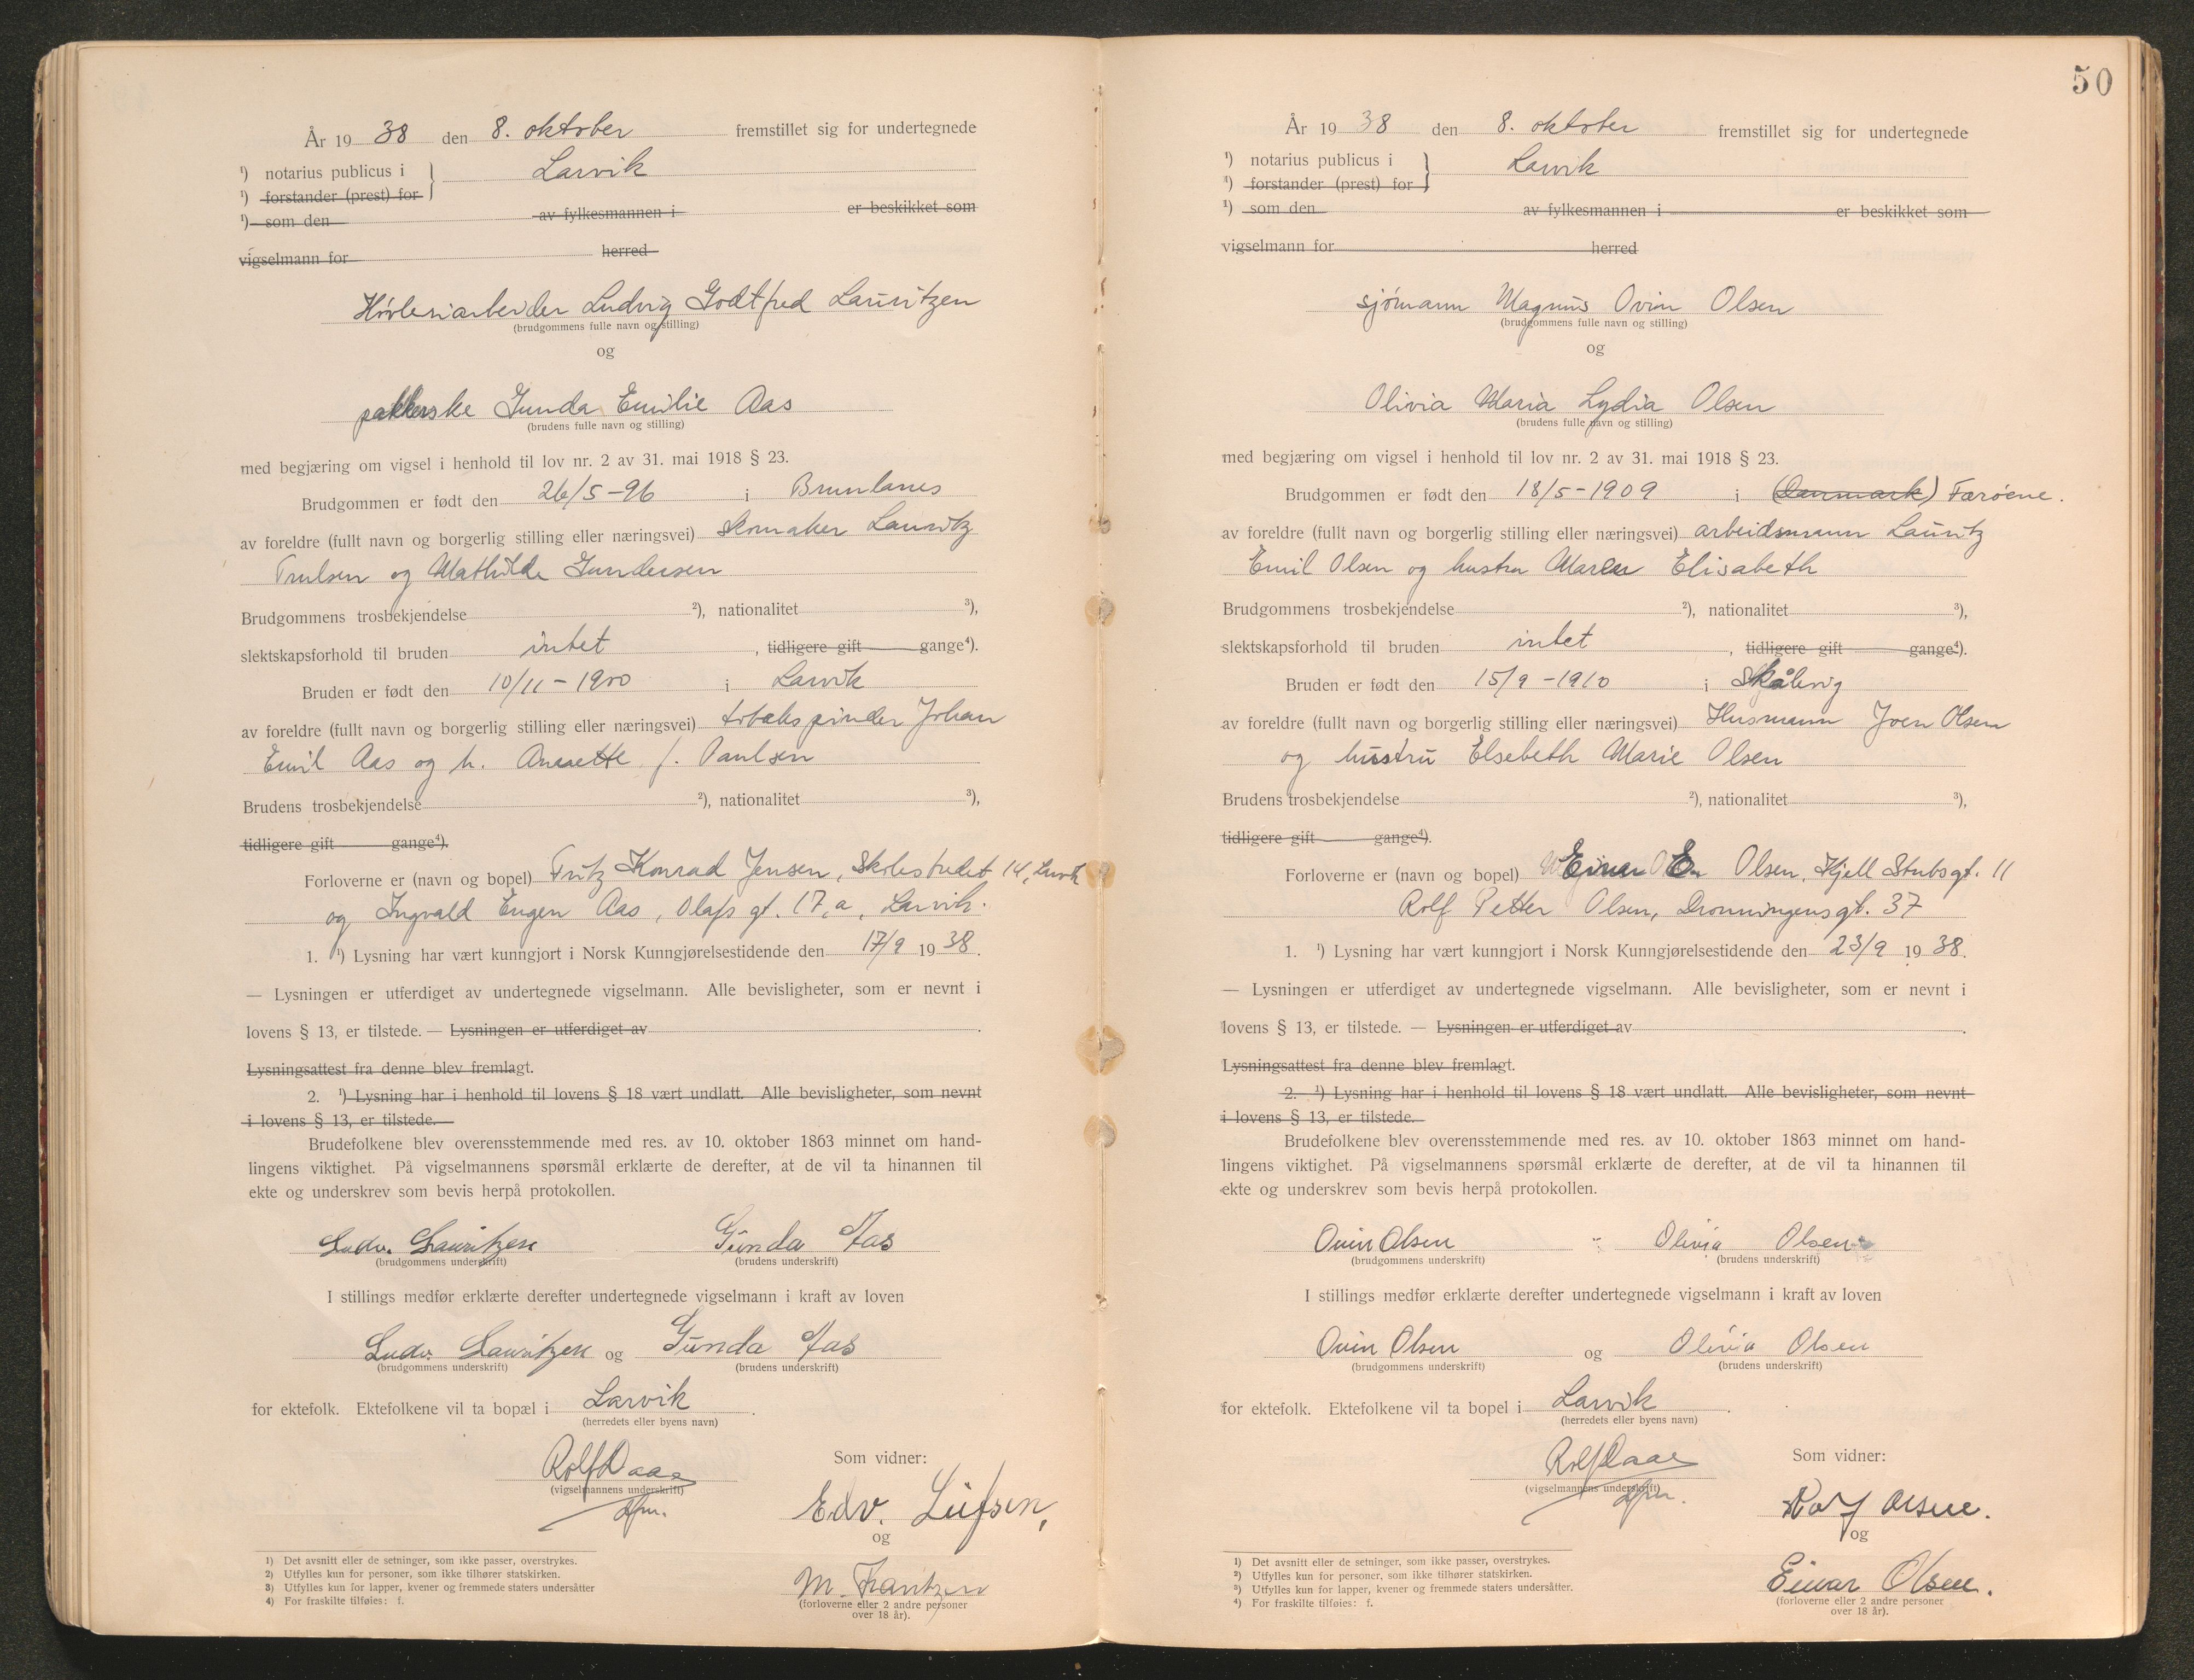 År 19 38 den 8. oktober fremstillet sig for undertegnede
¹) notarius publicus i } Larvik
¹) forstander (prest) for
¹) som den av fylkesmannen i er beskikket som
vigselmann for herred
Høvleriarbeider Ludvig Godtfred Lauritzen
(brudgommens fulle navn og stilling)
og
pakkerske Gunda Emilie Aas
(brudens fulle navn og stilling)
med begjæring om vigsel i henhold til lov nr. 2 av 31. mai 1918 § 23.
Brudgommen er født den 26/5-96 i Brunlanes
av foreldre (fullt navn og borgerlig stilling eller næringsvei) Skomaker Lauritz
Trulsen og Mathilde Gundersen
Brudgommens trosbekjendelse ²), nationalitet ³),
slektskapsforhold til bruden intet , tidligere gift gange⁴).
Bruden er født den 10/11-1900 i Larvik
av foreldre (fullt navn og borgerlig stilling eller næringsvei) tobakspinder Johan
Emil Aas og h. Annette f. Paulsen
Brudens trosbekjendelse ²), nationalitet ³),
tidligere gift gange⁴).
Forloverne er (navn og bopel) Fritz Konrad Jensen, Skolestredet 14, Larvik
og Ingvald Eugen Aas, Olafs gt. 17,a, Larvik.
1. ¹) Lysning har vært kunngjort i Norsk Kunngjørelsestidende den 17/9 19 38.
— Lysningen er utferdiget av undertegnede vigselmann. Alle bevisligheter, som er nevnt i
lovens § 13, er tilstede. — Lysningen er utferdiget av .
Lysningsattest fra denne blev fremlagt.
2. ¹) Lysning har i henhold til lovens § 18 vært undlatt. Alle bevisligheter, som nevnt
i lovens § 13, er tilstede.
Brudefolkene blev overensstemmende med res. av 10. oktober 1863 minnet om hand-
lingens viktighet. På vigselmannens spørsmål erklærte de derefter, at de vil ta hinannen til
ekte og underskrev som bevis herpå protokollen.
Ludv. Lauritzen Gunda Aas
(brudgommens underskrift) (brudens underskrift)
I stillings medfør erklærte derefter undertegnede vigselmann i kraft av loven
Ludv. Lauritzen og Gunda Aas
(brudgommens underskrift) (brudens underskrift)
for ektefolk. Ektefolkene vil ta bopæl i Larvik .
(herredets eller byens navn)
Rolf Daae Som vidner:
(vigselmannens underskrift)
Edv.
og
M.
(forloverne eller 2 andre personer
over 18 år).
1) Det avsnitt eller de setninger, som ikke passer, overstrykes.
2) Utfylles kun for personer, som ikke tilhører statskirken.
3) Utfylles kun for lapper, kvener og fremmede staters undersåtter
4) For fraskilte tilføies: f.
50
År 19 38 den 8. oktober fremstillet sig for undertegnede
¹) notarius publicus i } Larvik
¹) forstander (prest) for
¹) som den av fylkesmannen i er beskikket som
vigselmann for herred
sjømann Magnus Ovin Olsen
(brudgommens fulle navn og stilling)
og
Olivia Maria Lydia Olsen
(brudens fulle navn og stilling)
med begjæring om vigsel i henhold til lov nr. 2 av 31. mai 1918 § 23.
Brudgommen er født den 18/5-1909 i (Danmark) Færöene.
av foreldre (fullt navn og borgerlig stilling eller næringsvei) arbeidsmann Lauritz
Emil Olsen og hustru Maren Elisabeth
Brudgommens trosbekjendelse ²), nationalitet ³),
slektskapsforhold til bruden intet , tidligere gift gange⁴).
Bruden er født den 15/9-1910 i Skålevig
av foreldre (fullt navn og borgerlig stilling eller næringsvei) Husmann Joen Olsen
og hustru Elsebeth Marie Olsen
Brudens trosbekjendelse ²), nationalitet ³),
tidligere gift gange⁴).
Forloverne er (navn og bopel) Einar Olsen, Kjell Stubsgt. 11
Rolf Petter Olsen, Dronningensgt. 37
1. ¹) Lysning har vært kunngjort i Norsk Kunngjørelsestidende den 23/9 19 38.
— Lysningen er utferdiget av undertegnede vigselmann. Alle bevisligheter, som er nevnt i
lovens § 13, er tilstede. — Lysningen er utferdiget av .
Lysningsattest fra denne blev fremlagt.
2. ¹) Lysning har i henhold til lovens § 18 vært undlatt. Alle bevisligheter, som nevnt
i lovens § 13, er tilstede.
Brudefolkene blev overensstemmende med res. av 10. oktober 1863 minnet om hand-
lingens viktighet. På vigselmannens spørsmål erklærte de derefter, at de vil ta hinannen til
ekte og underskrev som bevis herpå protokollen.
Ovin Olsen Olivia Olsen
(brudgommens underskrift) (brudens underskrift)
I stillings medfør erklærte derefter undertegnede vigselmann i kraft av loven
Ovin Olsen og Olivia Olsen
(brudgommens underskrift) (brudens underskrift)
for ektefolk. Ektefolkene vil ta bopel i Larvik .
(herredets eller byens navn)
Rolf Daae Som vidner:
(vigselmannens underskrift)
Rolf Olsen.
og
Einar Olsen.
(forloverne eller 2 andre personer
over 18 år).
1) Det avsnitt eller de setninger, som ikke passer, overstrykes.
2) Utfylles kun for personer, som ikke tilhører statskirken.
3) Utfylles kun for lapper, kvener og fremmede staters undersåtter.
4) For fraskilte tilføies: f.